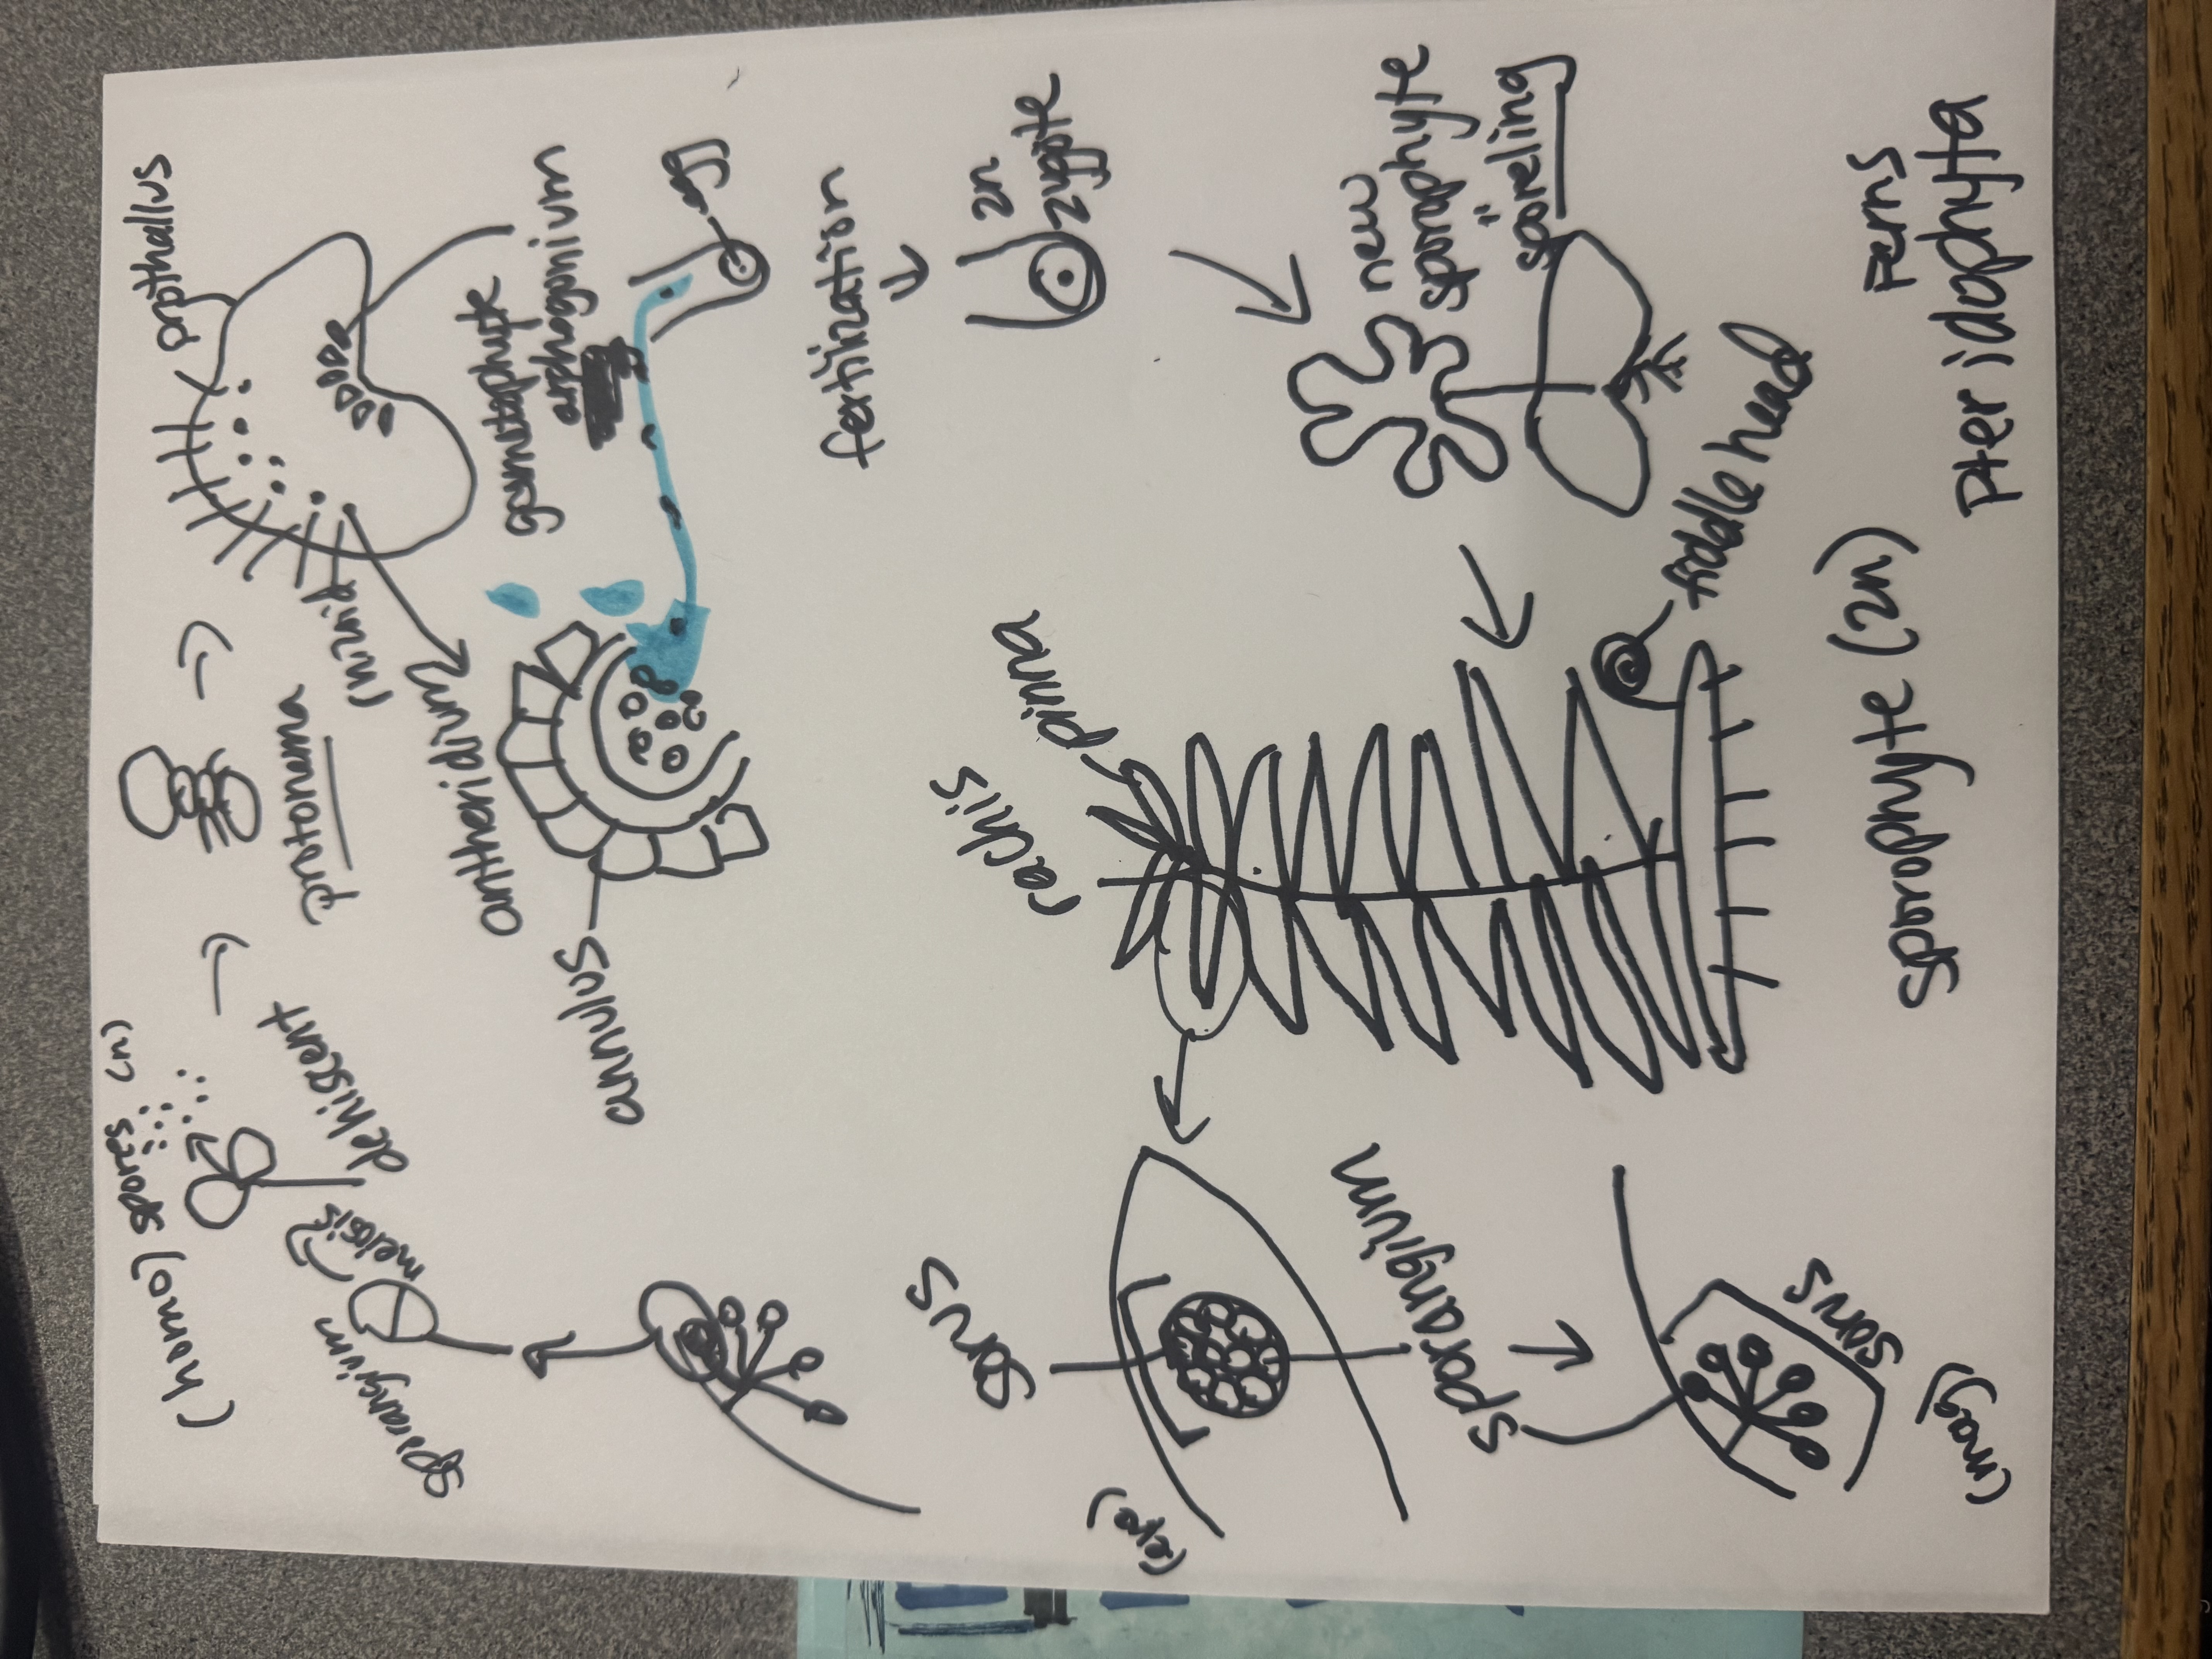 Pteridophyta
Ferns
sporophyte (2n)
(mag)
sorus
sporangium
(eye)
sorus
sporangium
meiosis
(homo) spores
(n)
dehiscent
protonema
prothallus
antheridium
annulus
gametophyte
egg
fertilization
2n
zygote
new
sporophyte
"
sporeling
fiddle head
pinna
rachis